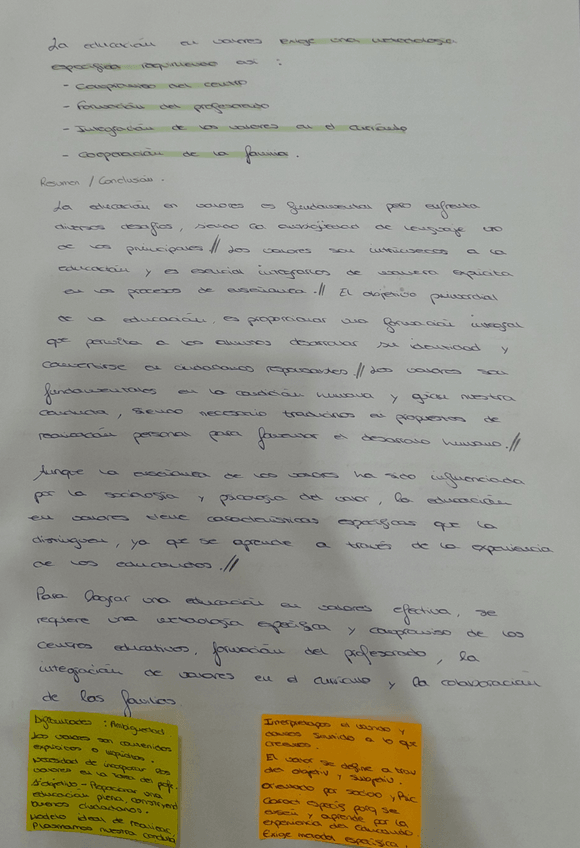 La educación en valores exige una metodología
específica requiriendo así :
- Compromiso del centro
- Formación del profesorado
- Integración de los valores en el currículo
- Cooperación de la familia.
Resumen / Conclusión.
La educación en valores es fundamental pero enfrenta
diversos desafíos, siendo la ambigüedad de lenguaje uno
de los principales // Los valores son intrínsecos a la
educación y es esencial integrarlos de manera explícita
en los procesos de enseñanza. // El objetivo primordial
de la educación, es proporcionar una formación integral
que permita a los alumnos desarrollar su identidad y
convertirse en ciudadanos responsables // Los valores son
fundamentales en la condición humana y guían nuestra
conducta, siendo necesario traducirlos en proyectos de
realización personal para favorecer el desarrollo humano. //
Aunque la enseñanza de los valores ha sido influenciada
por la sociología y psicología del valor, la educación
en valores tiene características específicas que la
distinguen, ya que se aprende a través de la experiencia
de los educandos. //
Para lograr una educación en valores efectiva, se
requiere una metodología específica y compromiso de los
centros educativos, formación del profesorado, la
integración de valores en el currículo y la colaboración
de las familias.
Dificultades : Ambigüedad
Los valores son contenidos
explícitos o implícitos.
Necesidad de incorporar los
valores en la tarea del profe.
Objetivo - Proporcionar una
educación plena, construyend
buenos ciudadanos.
Modelo ideal de realizac.
Plasmamos nuestra conduta
Interpretamos el mundo y
damos sentido a lo que
creemos.
El valor se define a trav
del objetiv y subjetiv.
Orientado por socio y Psic
Caract especifs porq se
enseñ y aprende por la
experiencia del educando
Exige metodol específica.